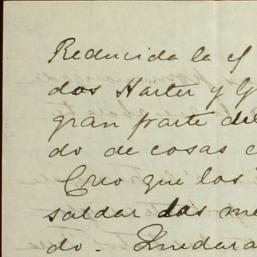 Reducida la
dos Harter y
gran parte del
do de cosas
Creo que los
saldar dos me
do. Quedara